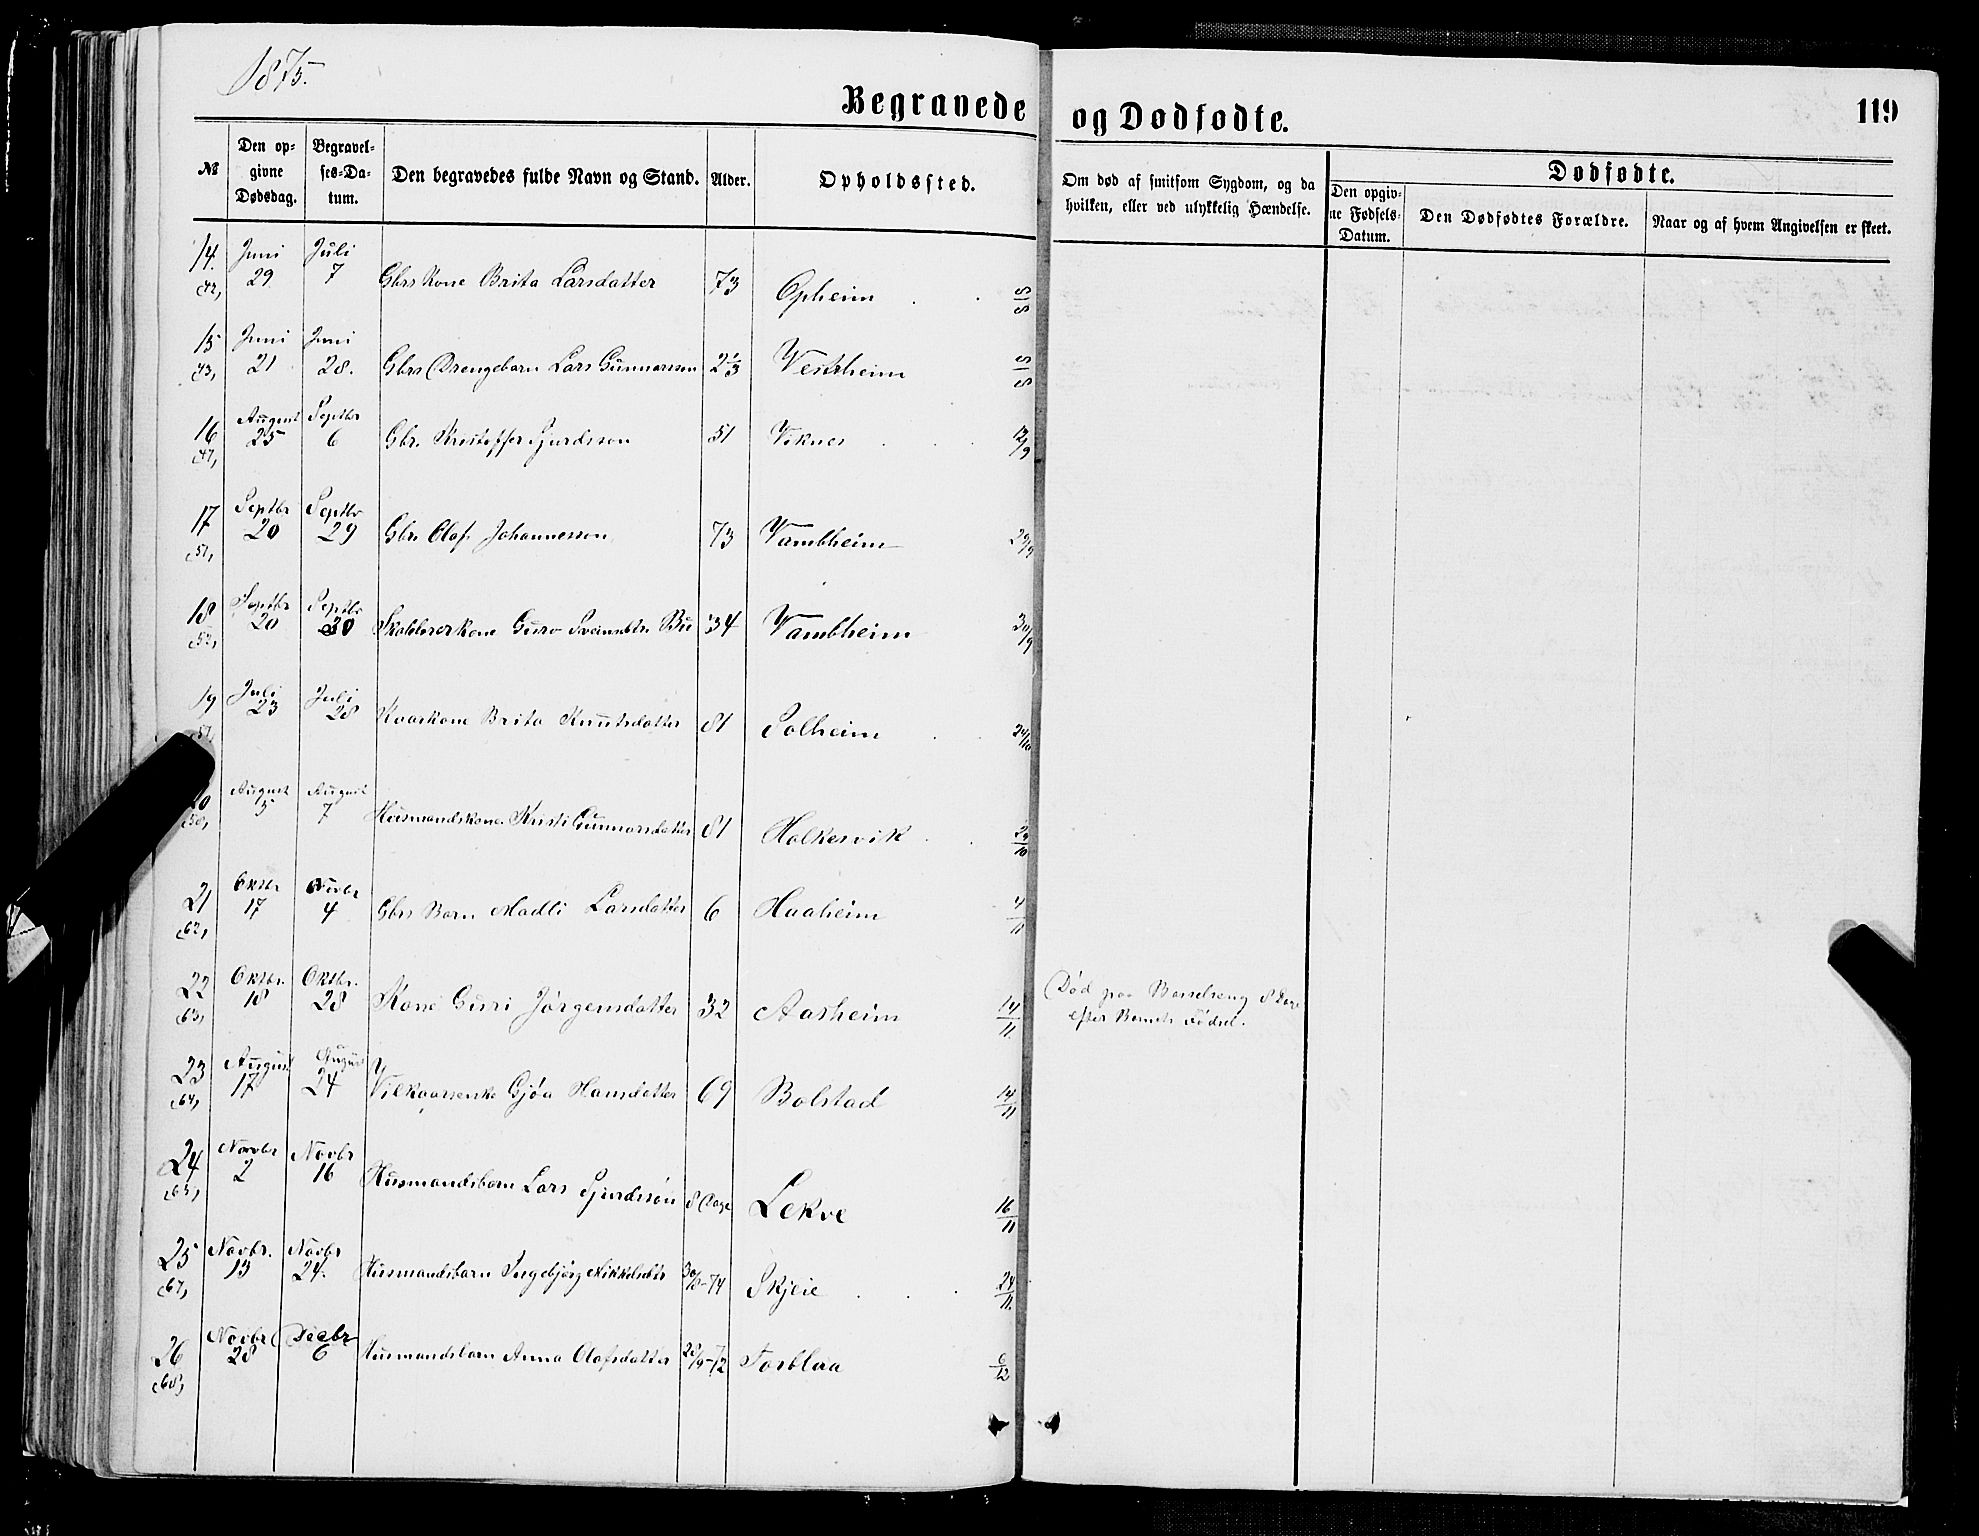 1875.
Begravede og Dødfødte.
119
№
Den opgivne Dødsdag.
Begravelses-Datum.
Den begravedes fulde Navn og Stand.
Alder.
Opholdssted.
Om død af smitsom Sygdom, og da hvilken, eller ved ulykkelig Hændelse.
Dødfødte.
Den opgivne Fødsels-Datum.
Den Dødfødtes Forældre.
Naar og af hvem Angivelsen er skeet.
14. (42) Juni 29 Juli 7 Gbrs Kone Brita Larsdatter 73 Opheim
15 (43) Juni 21 Juni 28. Gbrs Drengebarn Lars Gunnarsson 2 1/3 Vestrheim
16 (47) August 25 Septbr 6 Gbr. Kristoffer Sjurdsson 51 Viknes 12/9
17 (51) Septbr 20 Septbr 29 Gbr. Olaf Johannesson 73 Vambheim 29/9
18 Septbr 20 Septbr 30 Guro Sveinsdtr. Bu 34 Vambheim 30/9
19 Juli 23 Juli 28 Kaarkone Brita Knutsdatter 81 Solheim 24/10
20 August 5 August 7 Husmandskone Kristi Gunnarsdatter 81 Holkesvik 24/10
21 (62) Oktbr 17 Novbr 4 Gbrs Barn Madli Larsdatter 6 Haaheim 4/11
22 (63) Oktbr. 18 Oktbr. 28 Kone Guri Jørgensdatter 32 Aasheim 14/11 Død paa Barselseng 8 Dage
efter Barnets Fødsel.
23 (64) August 17 August 24 Vilkaarsenke Gjøa Hansdatter 69 Bolstad 14/11
24 (65) Novbr 2 Novbr 16 Husmandsbarn Lars Sjurdssøn 8 Dage Lekve 16/11
25 (67) Novbr. 13 Novbr 24. Husmandsbarn Ingebjørg Mikkelsdtr 30/8-74 Skjeie 24/11.
26 (68) Novbr 28 Decbr 6 Husmandsbarn Anna Olafsdatter 28/9-72 Torblaa 6/12